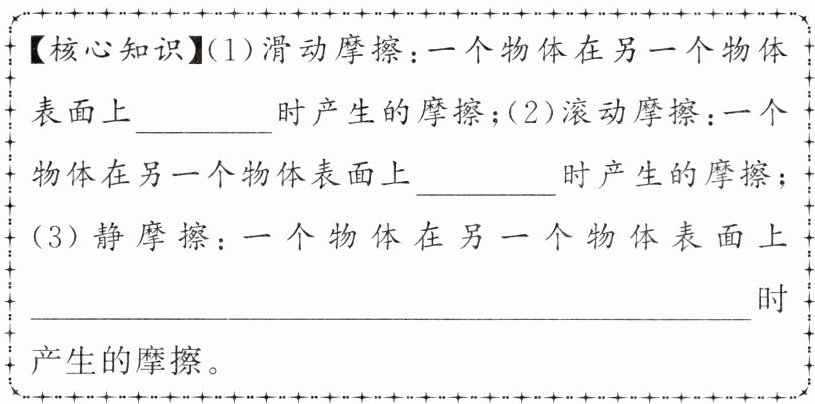 【核心知识】(1)滑动摩擦:一个物体在另一个物体
表面上________时产生的摩擦;(2)滚动摩擦:一个
物体在另一个物体表面上________时产生的摩擦;
(3)静摩擦:一个物体在另一个物体表面上
________________________________________时
产生的摩擦。